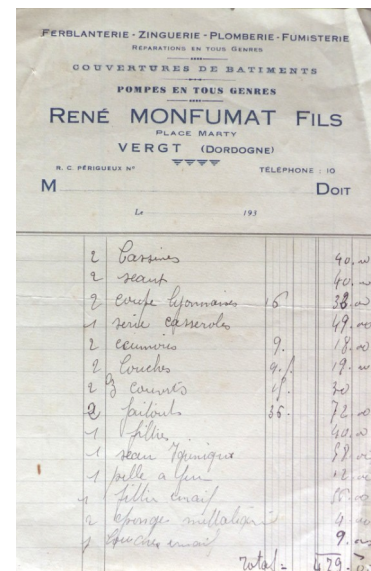 FERBLANTERIE - ZINGUERIE - PLOMBERIE - FUMISTERIE
RÉPARATIONS EN TOUS GENRES
COUVERTURES DE BATIMENTS
POMPES EN TOUS GENRES
RENÉ MONFUMAT FILS
PLACE MARTY
VERGT (DORDOGNE)
R. C. PÉRIGUEUX N° TÉLÉPHONE : 10
M DOIT
Le 193
2 bassines 40.00
2 seaux 40.00
2 coupe lyonnaises 16 38.00
1 serie casseroles 49.00
2 ecumoires 9. 18.00
2 Louches 19.00
2 couverts 30
2 faitouts 36. 72.00
1 40.00
1 seau
1 pelle a feu 12.00
1
2 eponges 4.
1 Louches email 9.00
total = 479.